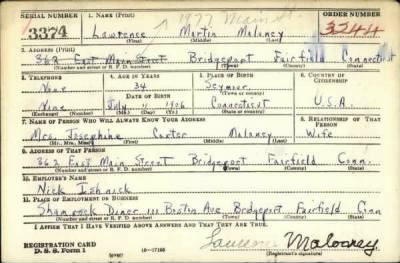 SERIAL NUMBER 1. NAME (Print) 1977 Main St. ORDER NUMBER
3374 Lawrence Martin Maloney 3344
(First) (Middle) (Last)
2. ADDRESS (Print)
362 East Main Street Bridgeport Fairfield Connecticut
(Number and street or R. F. D. number) (Town) (County) (State)
3. TELEPHONE 4. AGE IN YEARS 5. PLACE OF BIRTH 6. COUNTRY OF CITIZENSHIP
None 34 Seymour
DATE OF BIRTH (Town or county)
None July 11 1906 Connecticut U.S.A.
(Exchange) (Number) (Mo.) (Day) (Yr.) (State or country)
7. NAME OF PERSON WHO WILL ALWAYS KNOW YOUR ADDRESS 8. RELATIONSHIP OF THAT PERSON
Mrs. Josephine Carter Maloney Wife
(Mr., Mrs., Miss) (First) (Middle) (Last)
9. ADDRESS OF THAT PERSON
362 East Main Street Bridgeport Fairfield Conn.
(Number and street or R. F. D. number) (Town) (County) (State)
10. EMPLOYER'S NAME
Nick
11. PLACE OF EMPLOYMENT OR BUSINESS
Shamrock Diner 111 Boston Ave. Bridgeport Fairfield Conn
(Number and street or R. F. D. number) (Town) (County) (State)
I AFFIRM THAT I HAVE VERIFIED ABOVE ANSWERS AND THAT THEY ARE TRUE.
REGISTRATION CARD
D. S. S. Form 1 16—17105 Lawrence Maloney
(Registrant's signature)